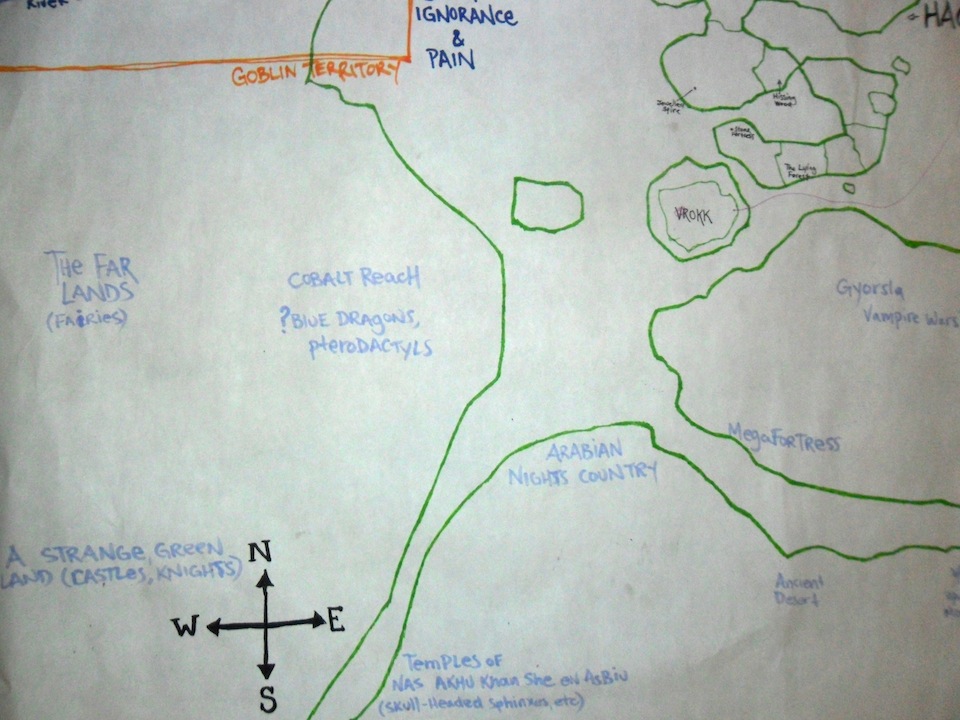 RIVER
IGNORANCE
&
PAIN
GOBLIN TERRITORY
Jewelled
Spire
Hissing
Stone
The Living
Forest
VROKK
THE FAR
LANDS
(FAIRIES)
COBALT REACH
?BLUE DRAGONS,
PTERODACTYLS
Gyorsla
Vampire Wars
MEGAFORTRESS
ARABIAN
NIGHTS COUNTRY
A STRANGE, GREEN
LAND (CASTLES, KNIGHTS)
N
W
E
S
Ancient
Desert
TEMPLES OF
NAS AKHU KHAN SHE EN ASBIU
(SKULL-HEADED SPHINXES, ETC)